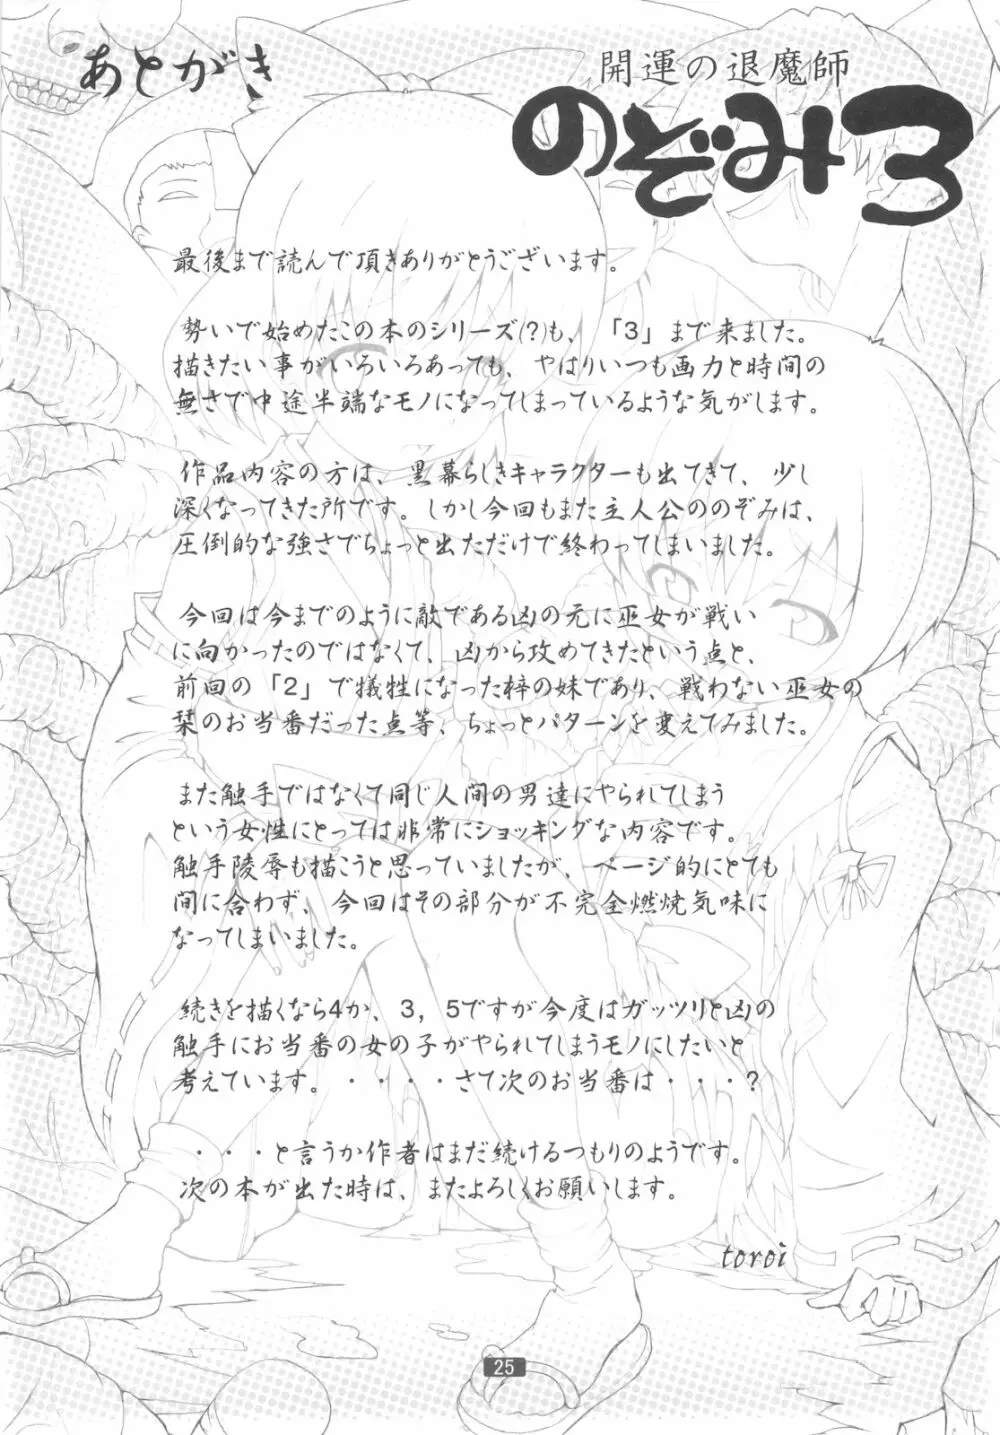 あとがき
開運の退魔師
のぞみ3
最後まで読んで頂きありがとうございます。
勢いで始めたこの本のシリーズ(?)も、「3」まで来ました。
描きたい事がいろいろあっても、やはりいつも画力と時間の
無さで中途半端なモノになってしまっているような気がします。
作品内容の方は、黒幕らしきキャラクターも出てきて、少し
深くなってきた所です。しかし今回もまた主人公ののぞみは、
圧倒的な強さでちょっと出ただけで終わってしまいました。
今回は今までのように敵である凶の元に巫女が戦い
に向かったのではなくて、凶から攻めてきたという点と、
前回の「2」で犠牲になった梓の妹であり、戦わない巫女の
栞のお当番だった点等、ちょっとパターンを変えてみました。
また触手ではなくて同じ人間の男達にやられてしまう
という女性にとっては非常にショッキングな内容です。
触手陵辱も描こうと思っていましたが、ページ的にとても
間に合わず、今回はその部分が不完全燃焼気味に
なってしまいました。
続きを描くなら4か、3,5ですが今度はガッツリと凶の
触手にお当番の女の子がやられてしまうモノにしたいと
考えています。・・・・さて次のお当番は・・・?
・・・と言うか作者はまだ続けるつもりのようです。
次の本が出た時は、またよろしくお願いします。
toroi
25